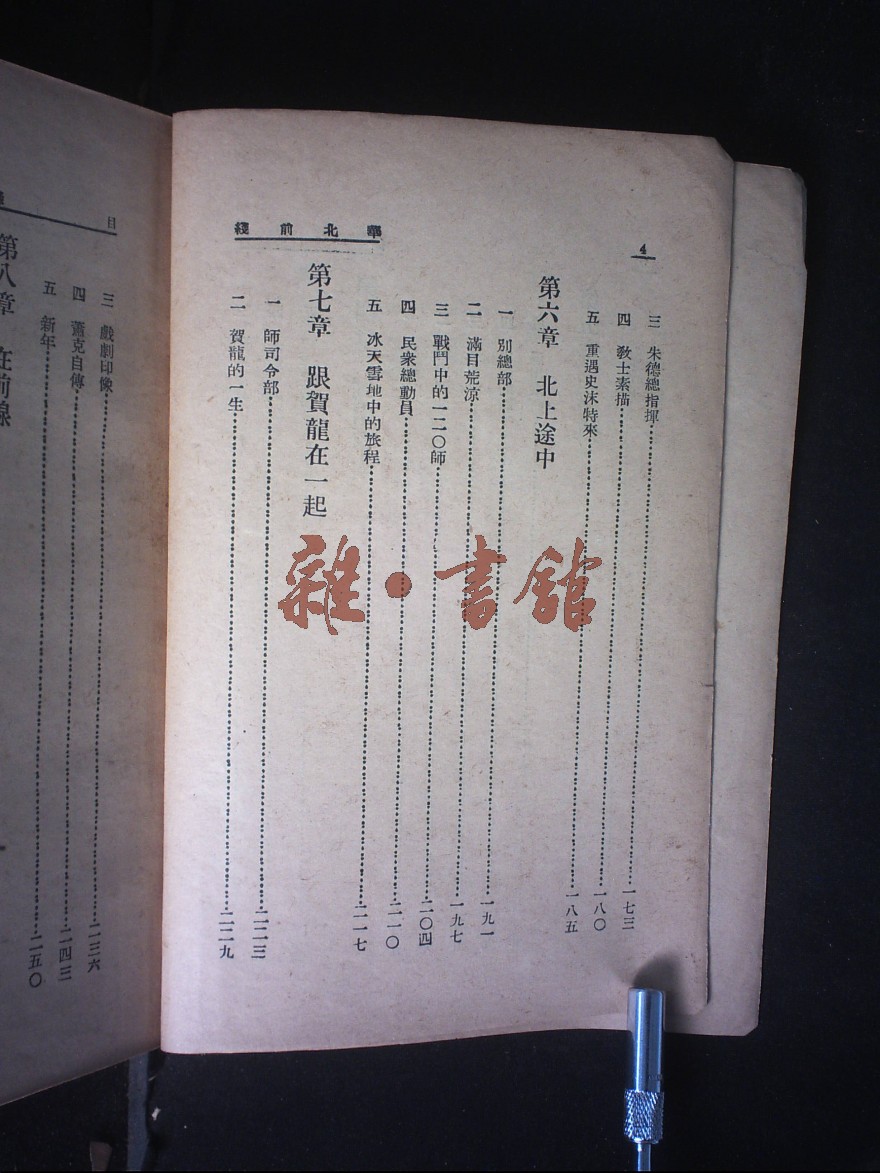 華北前綫
4
三 朱德總指揮 一七三
四 教士素描 一八〇
五 重遇史沫特來 一八五
第六章 北上途中
一 別總部 一九一
二 滿目荒涼 一九七
三 戰鬥中的一二〇師 二〇四
四 民衆總動員 二一〇
五 冰天雪地中的旅程 二一七
第七章 跟賀龍在一起
一 師司令部 二二三
二 賀龍的一生 二二九
雜·書館
目
三 戲劇印像 二三六
四 蕭克自傳 二四三
五 新年 二五〇
第八章 在前線